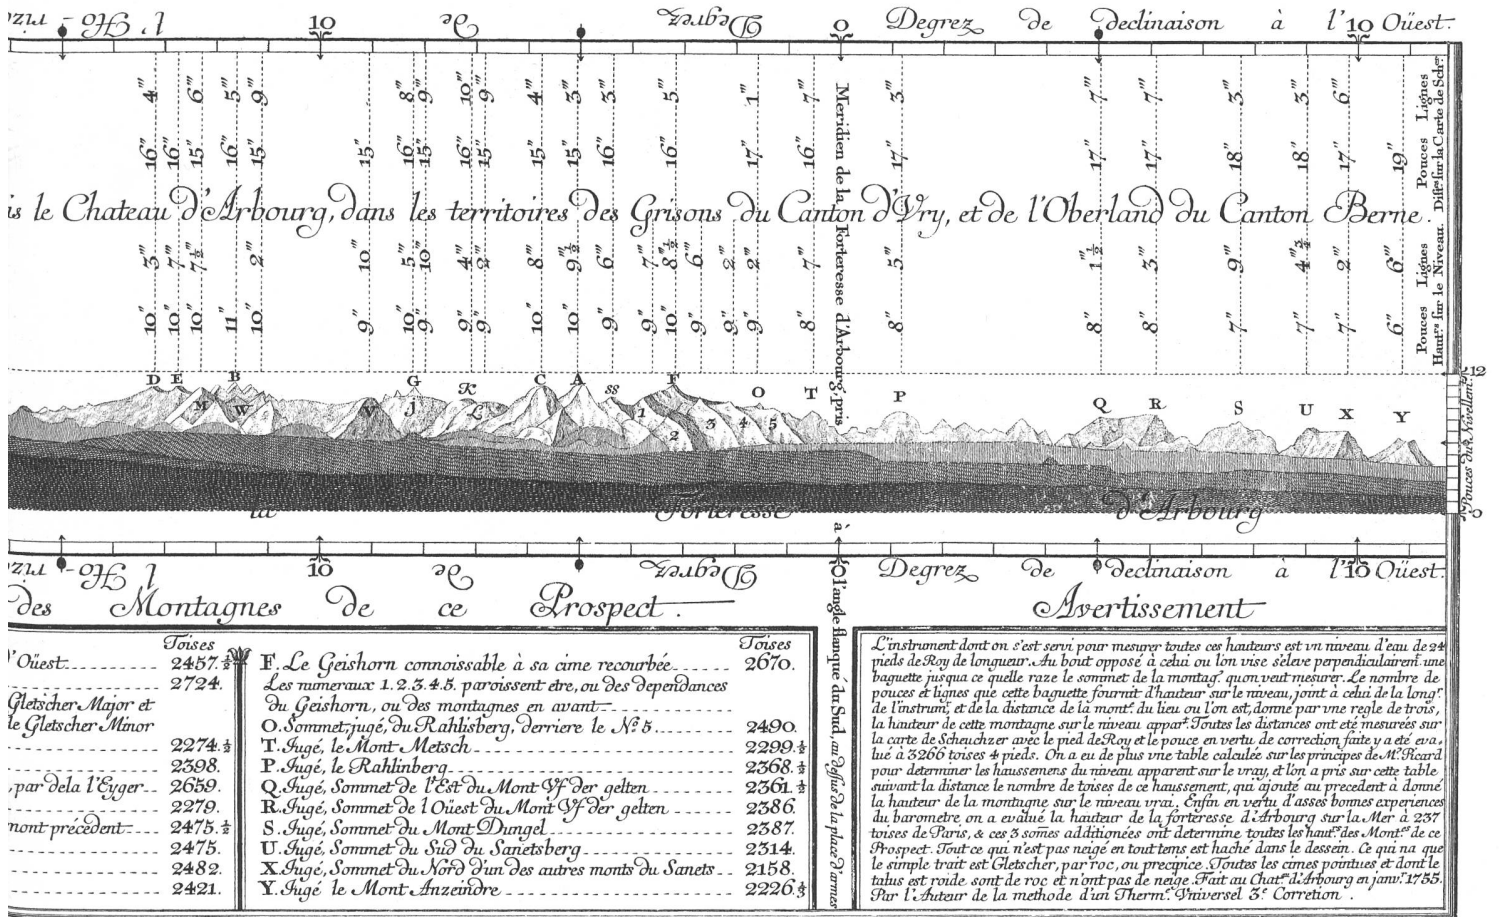 10 de Degrez 0 Degrez de declinaison à l'10 Oüest.
4''' 6''' 5''' 9''' 8''' 9''' 10''' 9''' 4''' 3''' 3''' 5''' 1''' 7''' 3''' 7''' 7''' 3''' 3''' 6''' Lignes
16'' 16'' 15'' 16'' 15'' 15'' 16'' 15'' 16'' 15'' 15'' 15'' 16'' 16'' 17'' 16'' 17'' 17'' 17'' 18'' 18'' 17'' 19'' Pouces
Meridien de la Forteresse d'Arbourg, pris
à l'angle flanqué du Sud, au dessus de la place d'armes
is le Chateau d'Arbourg, dans les territoires des Grisons du Canton d'Vry, et de l'Oberland du Canton Berne.
3''' 7''' 7½''' 2''' 10''' 5''' 10''' 4''' 2''' 8''' 9½''' 6''' 7''' 8½''' 6''' 2''' 2''' 7''' 5''' 1½''' 3''' 9''' 4¾''' 2''' 6''' Lignes
10'' 10'' 10'' 11'' 10'' 9'' 10'' 9'' 9'' 9'' 10'' 10'' 9'' 9'' 10'' 9'' 9'' 9'' 8'' 8'' 8'' 8'' 7'' 7'' 7'' 6'' Pouces
12
D E B G K C A ss F O T P Q R S U X Y
M W V J L 1 2 3 4 5
Pouces du Nivellem.t
0
la Forteresse d'Arbourg
10 de Degrez 0 Degrez de declinaison à l'10 Oüest.
des Montagnes de ce Prospect.
Toises
l'Oüest 2457.½
2724.
Gletscher Major et
le Gletscher Minor
2274.½
2398.
, par dela l'Eyger 2659.
2279.
mont précédent 2475.½
2475.
2482.
2421.
Toises
F. Le Geishorn connoissable à sa cime recourbée 2670.
Les numeraux 1.2.3.4.5. paroissent etre, ou des dependances
du Geishorn, ou des montagnes en avant
O. Sommet, jugé, du Rahlisberg, derriere le No. 5. 2490.
T. Jugé, le Mont Metsch 2299.½
P. Jugé, le Rahlinberg 2368.½
Q. Jugé, Sommet de l'Est du Mont Vf der gelten 2361.½
R. Jugé, Sommet de l'Oüest du Mont Vf der gelten 2386.
S. Jugé, Sommet du Mont Dungel 2387.
U. Jugé, Sommet du Sud du Sanetsberg 2314.
X. Jugé, Sommet du Nord d'un des autres monts du Sanets 2158.
Y. Jugé le Mont Anzeindre 2226.⅓
Avertissement
L'instrument dont on s'est servi pour mesurer toutes ces hauteurs est vn niveau d'eau de 24
pieds de Roy de longueur. Au bout opposé à celui ou l'on vise s'eleve perpendiculairem.t une
baguette jusqua ce quelle raze le sommet de la montag.e quon veut mesurer. Le nombre de
pouces et lignes que cette baguette fournit d'hauteur sur le niveau, joint à celui de la long.r
de l'instrum.t, et de la distance de la mont.e du lieu ou l'on est, donne par vne regle de trois,
la hauteur de cette montagne sur le niveau appar.t. Toutes les distances ont eté mesurées sur
la carte de Scheuchzer avec le pied de Roy et le pouce en vertu de correction faite y a eté eva,
lué à 3266 toises 4 pieds. On a eu de plus vne table calculée sur les principes de Mr. Picard
pour determiner les haussemens du niveau apparent sur le vray, et l'on a pris sur cette table
suivant la distance le nombre de toises de ce haussement, qui ajouté au precedent à donné
la hauteur de la montagne sur le niveau vrai. Enfin en vertu d'asses bonnes experiences
du barometre, on a evalué la hauteur de la forteresse d'Arbourg sur la Mer à 237
toises de Paris, & ces 3 somes additionées ont determine toutes les haut.rs des Mont.es de ce
Prospect. Tout ce qui n'est pas neigé en tout tems est haché dans le dessein. Ce qui na que
le simple trait est Gletscher, par roc, ou precipice. Toutes les cimes pointues et dont le
talus est roide sont de roc et n'ont pas de neige. Fait au Chat.u d'Arbourg en janv.r 1755.
Par l'Auteur de la methode d'un Therm.e Vniversel 3.e Corretion.